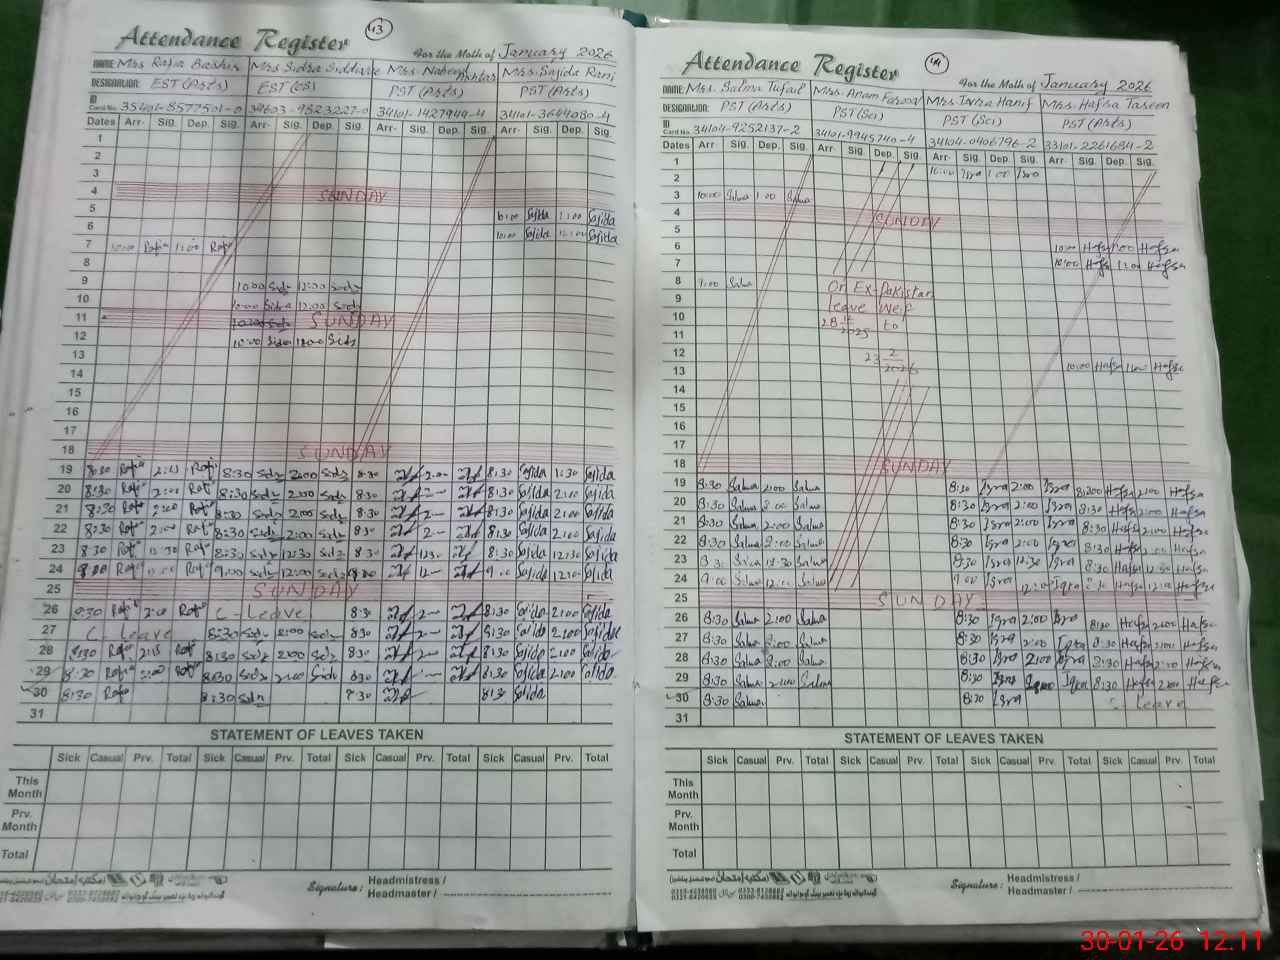 43
Attendance Register
For the Math of January 2026
NAME: Mrs Rafia Bashir Mrs Sidra Siddique Mrs. Naheed Akhtar Mrs. Sajida Rani
DESIGNATION: EST (Arts) EST (CS) PST (Arts) PST (Arts)
ID Card No. 35401-8577501-0 34603-9823227-0 34101-1427944-4 34101-3644080-4
Dates Arr. Sig. Dep. Sig. Arr. Sig. Dep. Sig. Arr. Sig. Dep. Sig. Arr. Sig. Dep. Sig.
1
2
3
4 SUNDAY
5 10:00 Sajida 1:00 Sajida
6 10:00 Sajida 12:00 Sajida
7 10:00 Rafia 1:00 Rafia
8
9 10:00 Sidra 12:00 Sidra
10 10:00 Sidra 12:00 Sidra
11 SUNDAY
12 10:00 Sidra 12:00 Sidra
13
14
15
16
17
18 SUNDAY
19 8:30 Rafia 2:15 Rafia 8:30 Sidra 2:00 Sidra 8:30 2:00 8:30 Sajida 1:30 Sajida
20 8:30 Rafia 2:00 Rafia 8:30 Sidra 2:00 Sidra 8:30 8:30 Sajida 2:00 Sajida
21 8:30 Rafia 2:00 Rafia 8:30 Sidra 2:00 Sidra 8:30 2- 8:30 Sajida 2:00 Sajida
22 8:30 Rafia 2:00 Rafia 8:30 Sidra 2:00 Sidra 8:30 2- 8:30 Sajida 2:00 Sajida
23 8:30 Rafia 12:30 Rafia 8:30 Sidra 12:30 Sidra 8:30 1230 8:30 Sajida 12:30 Sajida
24 Rafia 12:00 Rafia 9:00 Sidra 12:00 Sidra 12- 9:00 Sajida 12:00 Sajida
25 SUNDAY
26 8:30 Rafia 2:00 Rafia C-Leave 8:30 2- 8:30 Sajida 2:00 Sajida
27 C-Leave 8:30 Sidra 2:00 Sidra 8:30 2- 8:30 Sajida 2:00 Sajida
28 8:30 Rafia 2:15 Rafia 8:30 Sidra 2:00 Sidra 8:30 2- 8:30 Sajida 2:00 Sajida
29 8:30 Rafia 2:00 Rafia 8:30 Sidra 2:00 Sidra 8:30 8:30 Sajida 2:00 Sajida
30 8:30 Rafia 8:30 Sidra 8:30 Sajida
31
STATEMENT OF LEAVES TAKEN
Sick Casual Prv. Total Sick Casual Prv. Total Sick Casual Prv. Total Sick Casual Prv. Total
This Month
Prv. Month
Total
Signature: Headmistress / Headmaster /
44
Attendance Register
For the Math of January 2026
NAME: Mrs. Salma Tufail Mrs. Anam Farooq Mrs Iqra Hanif Mrs. Hafsa Taseen
DESIGNATION: PST (Arts) PST (Sci) PST (Sci) PST (Arts)
ID Card No. 34104-9252137-2 34101-9945740-4 34104-0406796-2 33101-2261684-2
Dates Arr. Sig. Dep. Sig. Arr. Sig. Dep. Sig. Arr. Sig. Dep. Sig. Arr. Sig. Dep. Sig.
1 10:00 Iqra 1:00 Iqra
2
3 10:00 Salma 1:00 Salma
4 SUNDAY
5
6 10:00 Hafsa 1:00 Hafsa
7 10:00 Hafsa 1:00 Hafsa
8 9:00 Salma On Ex-Pakistan
9 leave W.e.f
10 28 12 2025 to
11
12 23 2 2026
13 10:00 Hafsa 1:00 Hafsa
14
15
16
17
18 SUNDAY
19 8:30 Salma 2:00 Salma 8:30 Iqra 2:00 Iqra 8:30 Hafsa 2:00 Hafsa
20 8:30 Salma 2:00 Salma 8:30 Iqra 2:00 Iqra 8:30 Hafsa 2:00 Hafsa
21 8:30 Salma 2:00 Salma 8:30 Iqra 2:00 Iqra 8:30 Hafsa 2:00 Hafsa
22 8:30 Salma 2:00 Salma 8:30 Iqra 2:00 Iqra 8:30 Hafsa 2:00 Hafsa
23 8:30 Salma 12:30 Salma 8:30 Iqra 12:30 Iqra 8:30 Hafsa 12:30 Hafsa
24 9:00 Salma 12:00 Salma 9:00 Iqra 12:00 Iqra Hafsa 12:00 Hafsa
25 SUNDAY
26 8:30 Salma 2:00 Salma 8:30 Iqra 2:00 Iqra 8:30 Hafsa 2:00 Hafsa
27 8:30 Salma 2:00 Salma 8:30 Iqra 2:00 Iqra 8:30 Hafsa 2:00 Hafsa
28 8:30 Salma 2:00 Salma 8:30 Iqra 2:00 Iqra 8:30 Hafsa 2:00 Hafsa
29 8:30 Salma 2:00 Salma 8:30 Iqra 2:00 Iqra 8:30 Hafsa 2:00 Hafsa
30 8:30 Salma 8:30 Iqra C-Leave
31
STATEMENT OF LEAVES TAKEN
Sick Casual Prv. Total Sick Casual Prv. Total Sick Casual Prv. Total Sick Casual Prv. Total
This Month
Prv. Month
Total
Signature: Headmistress / Headmaster /
30-01-26 12:11